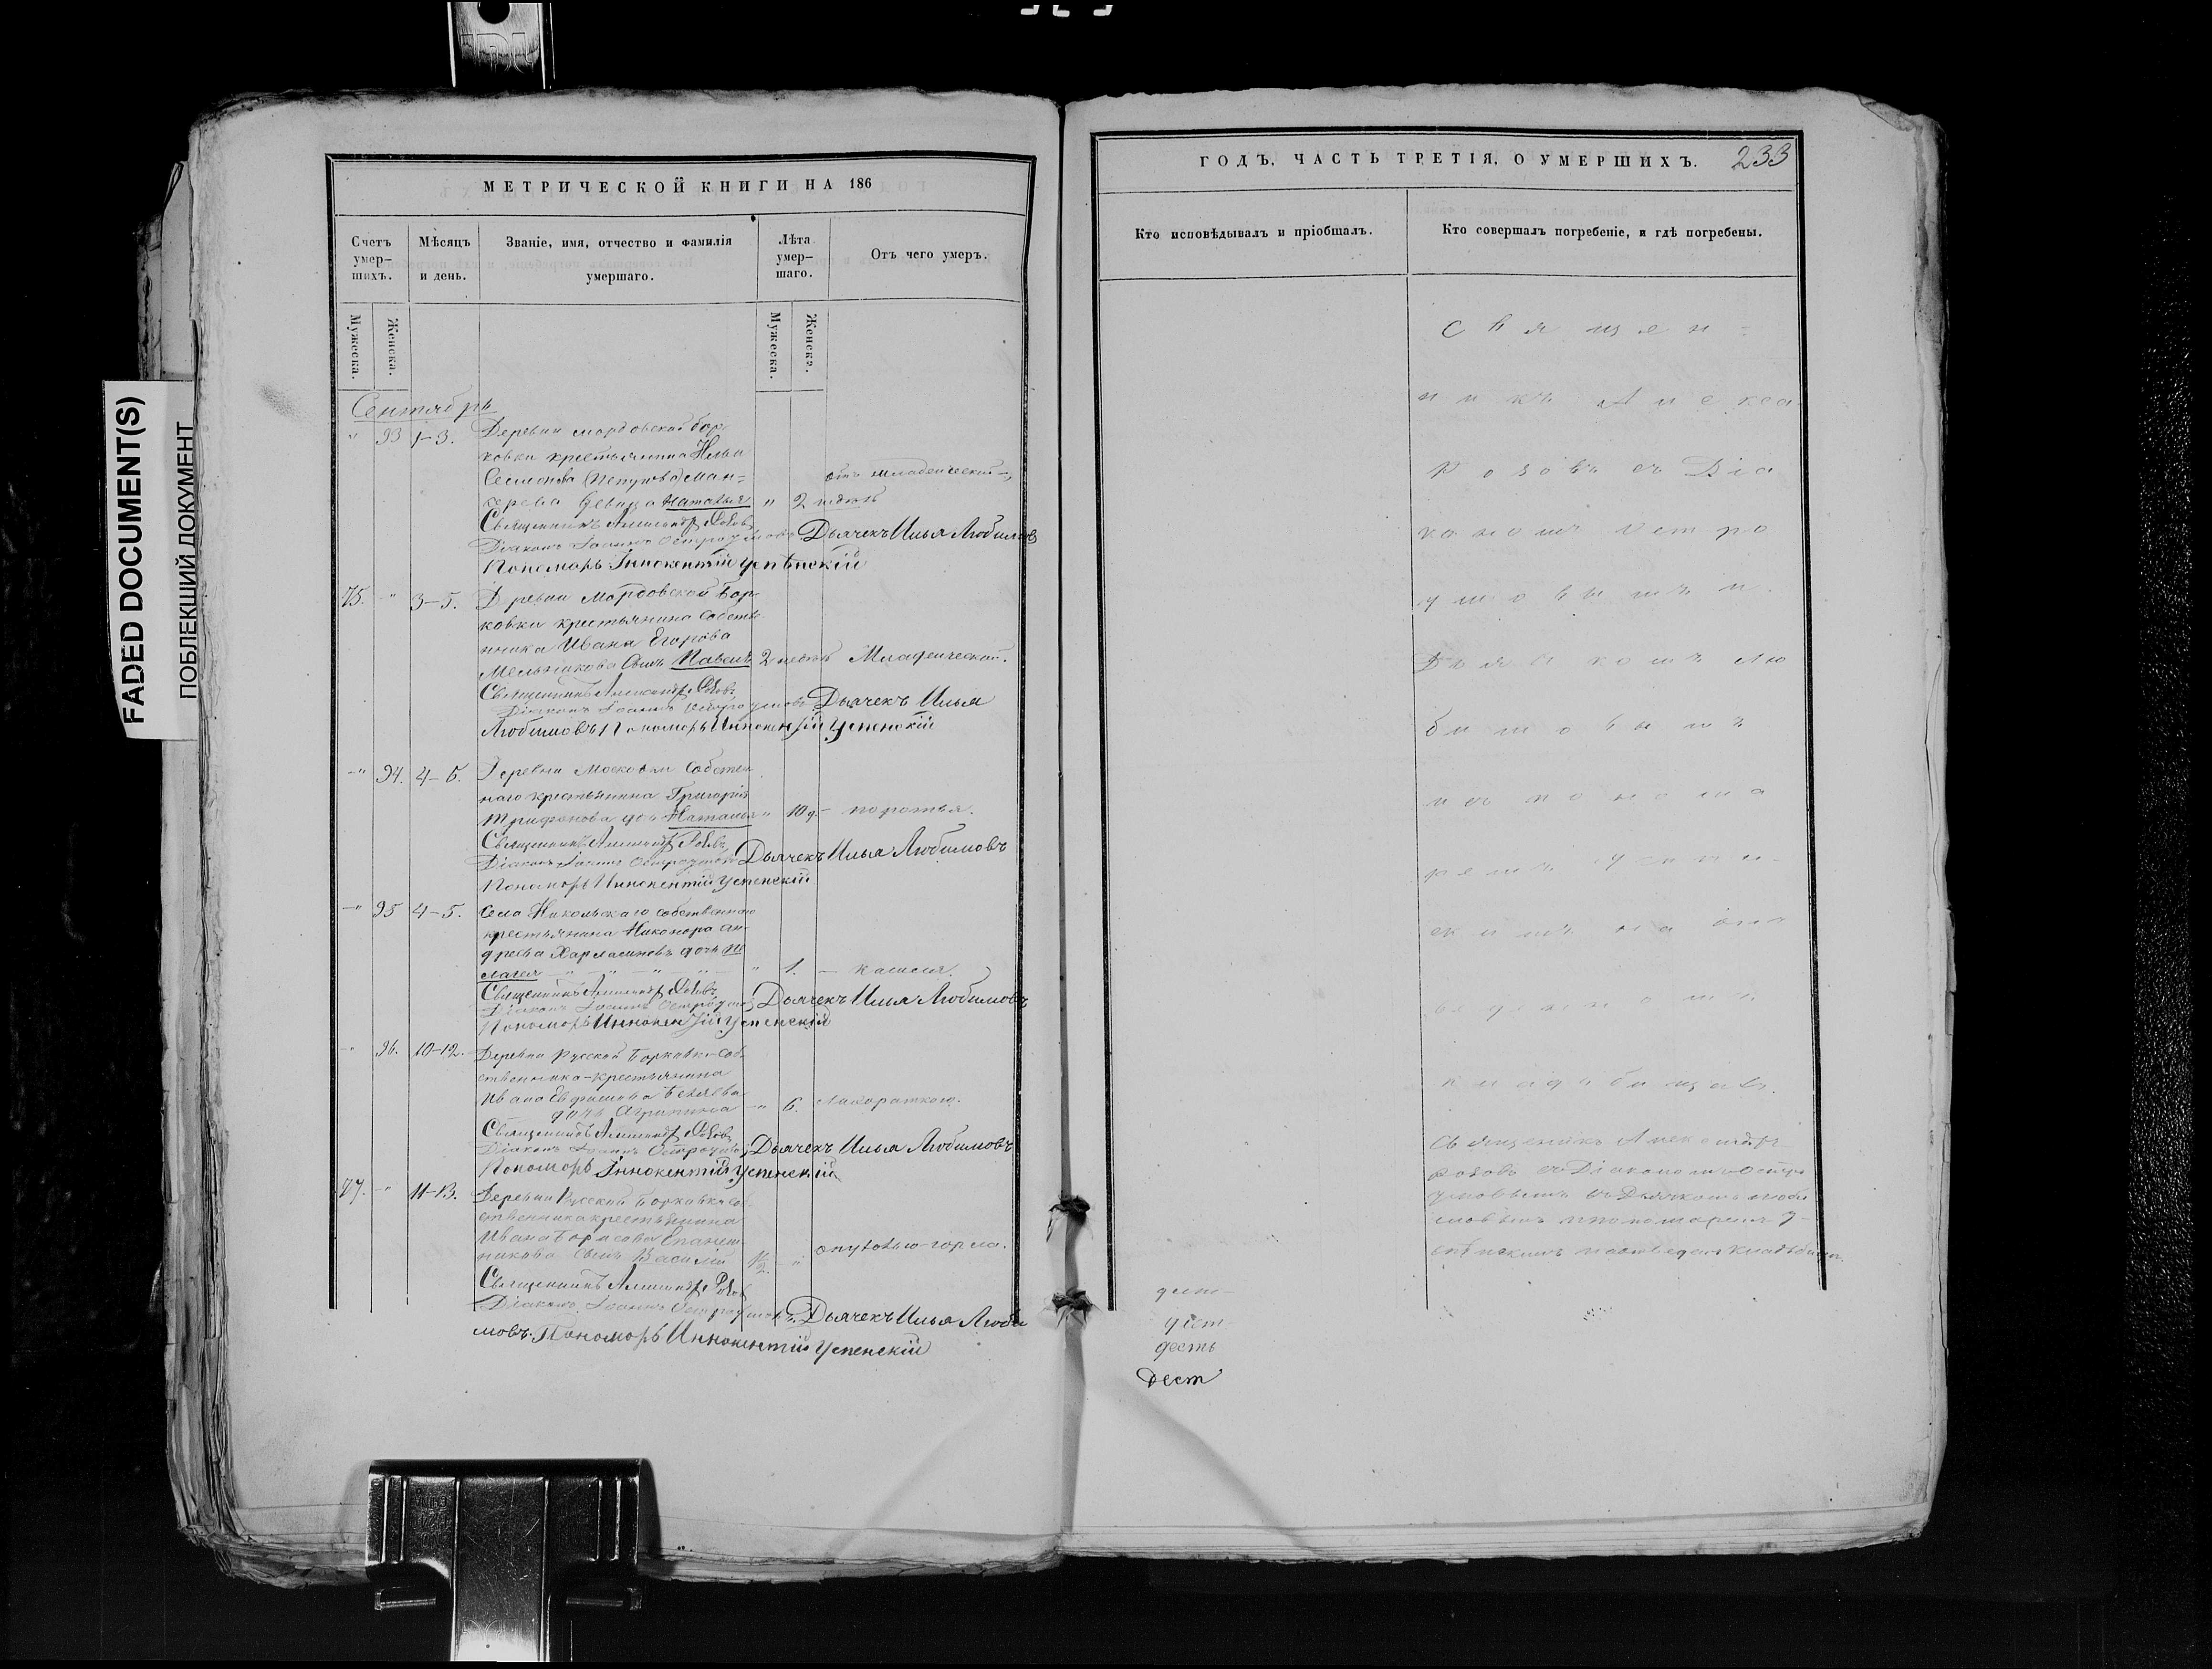 FADED DOCUMENT(S)
ПОБЛЕКШИЙ ДОКУМЕНТ
МЕТРИЧЕСКОЙ КНИГИ НА 186
Счетъ умер- шихъ.
Мѣсяцъ и день.
Званіе, имя, отчество и фамилія умершаго.
Лѣта умер- шаго.
Отъ чего умеръ.
Мужеска.
Женска.
Мужеска.
Женска.
Сентябрь
" 93 1-3. Деревни мордовской бор
ковки крестьянина Ильи
Семенова
девица Наталья " 2 недѣль отъ младенческой
Священникъ Александръ Розовъ
Діаконъ Іоаннъ Остроумовъ Дьячекъ Илья Любимовъ
Пономарь Іннокентій Успѣнскій
75. " 3-5. Деревни Мордовской Бор
ковки крестьянина Собств
нника Ивана Егорова
Мельникова сынъ Павелъ 2 недѣль Младенческой.
Священникъ Александръ Розовъ
Діаконъ Іоаннъ Остроумовъ Дьячекъ Илья
Любимовъ Пономарь Иннокентій Успенскій
" 94. 4-6. Деревни Московки Собствен
наго крестьянина Григорія
Трифонова дочь Наталья " 10 д.
Священникъ Александръ Розовъ
Діаконъ Іоаннъ Остроумовъ Дьячекъ Илья Любимовъ
Пономарь Иннокентій Успенскій
" 95 4-5. Села Никольскаго собственнаго
крестьянина Никонора Ан
дреева дочь Пе
лагея " 1. кашля.
Священникъ Александръ Розовъ
Діаконъ Іоаннъ Остроумовъ Дьячекъ Илья Любимовъ
Пономарь Иннокентій Успенскій
" 96. 10-12. Деревни Русской Борковки соб
ственника-крестьянина
Ивана Ефимова Беляева
дочь Агрипина " 6.
Священникъ Александръ Розовъ
Діаконъ Іоаннъ Остроумовъ Дьячекъ Илья Любимовъ
Пономарь Іннокентій Успенскій
77. " 11-13. Деревни Русской Борковки со
ственника крестьянина
Ивана Борисова
сынъ Василій 1/2 " опухолью-горла.
Священникъ Александръ Розовъ
Діаконъ Іоаннъ Остроумовъ. Дьячекъ Илья Люби
мовъ. Пономарь Иннокентій Успенскій
ГОДЪ, ЧАСТЬ ТРЕТІЯ, О УМЕРШИХЪ. 233
Кто исповѣдывалъ и пріобщалъ.
Кто совершалъ погребеніе, и гдѣ погребены.
Священ-
никъ Алекса
Розовъ съ Діа
кономъ Остро
умовымъ и
Дьячкомъ Лю
бимовымъ
и съ понома
ремъ Успен-
скимъ на отв
еденомъ
кладбищѣ.
Священникъ Александръ
Розовъ съ Діакономъ Остро
умовымъ съ Дьячкомъ Люби
мовымъ и пономаремъ У-
спѣнскимъ на отведен кладбищѣ
дест
дест
десть
Дест